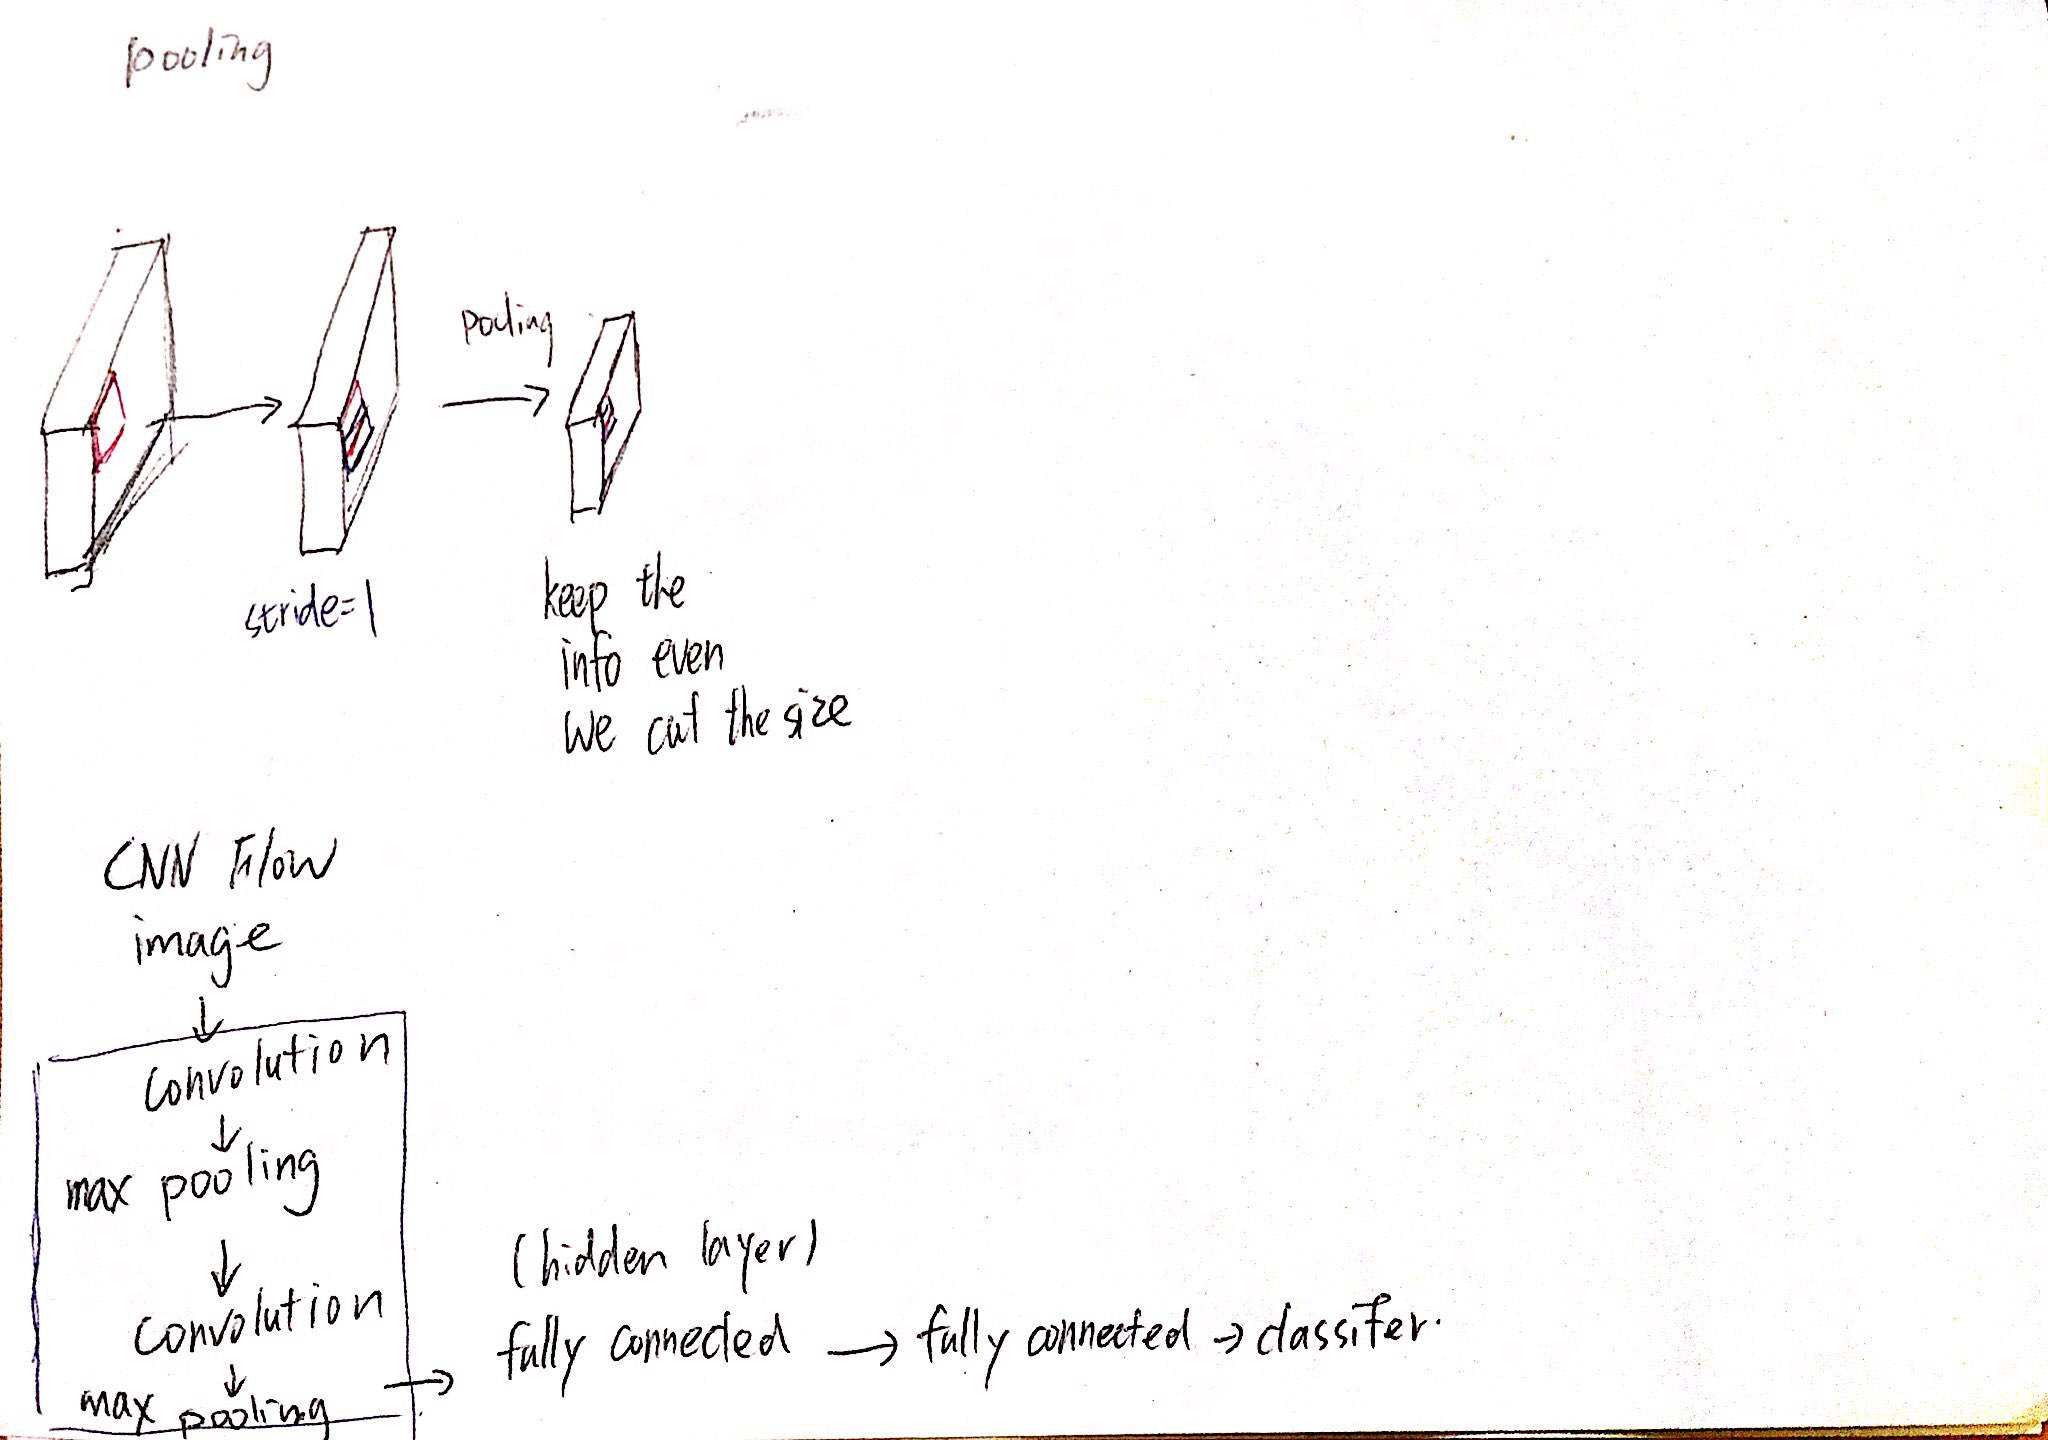 pooling
pooling
stride=1
keep the
info even
we cut the size
CNN Flow
image
convolution
max pooling
convolution
max pooling
(hidden layer)
fully connected → fully connected → classifer.